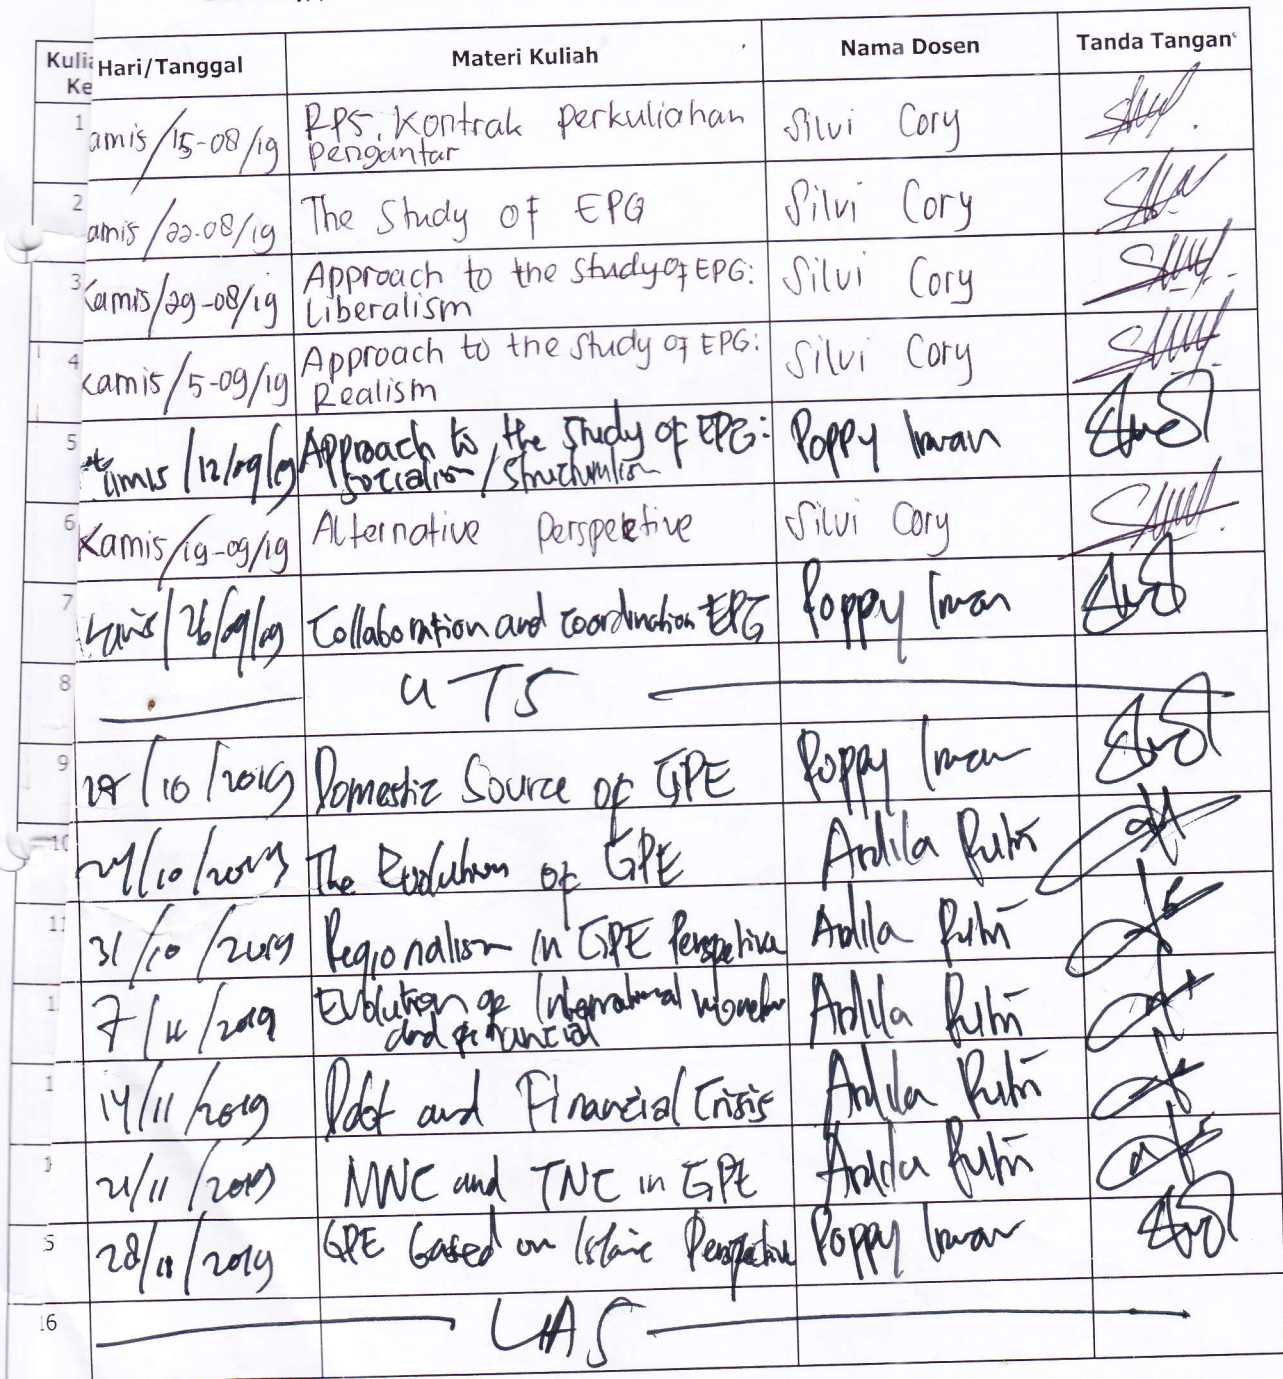 Kulia Hari/Tanggal Materi Kuliah Nama Dosen Tanda Tangan
Ke
1 amis/15-08/19 RPS, Kontrak perkuliahan Silvi Cory
pengantar
2 amis/22-08/19 The Study of EPG Silvi Cory
3 Kamis/29-08/19 Approach to the study of EPG: Silvi Cory
Liberalism
4 Kamis/5-09/19 Approach to the study of EPG: Silvi Cory
Realism
5 Kamis/12/09/19 Approach to the study of EPG: Poppy Irwan
socialism/Structuralism
6 Kamis/19-09/19 Alternative Perspektive Silvi Cory
7 Kamis/26/09/09 Collaboration and coordination EPG Poppy Irwan
8 UTS
9 /10/2019 Domestic Source of GPE Poppy Irwan
10 /10/2019 The Evolution of GPE Ardila Putri
11 31/10/2019 Regionalism in GPE Perspetive Ardila Putri
1 7/11/2019 Evolution of International
and financial Ardila Putri
1 14/11/2019 Debt and Financial Crisis Ardila Putri
1 21/11/2019 MNC and TNC in GPE Ardila Putri
5 28/11/2019 GPE based on Perspective Poppy Irwan
16 UAS